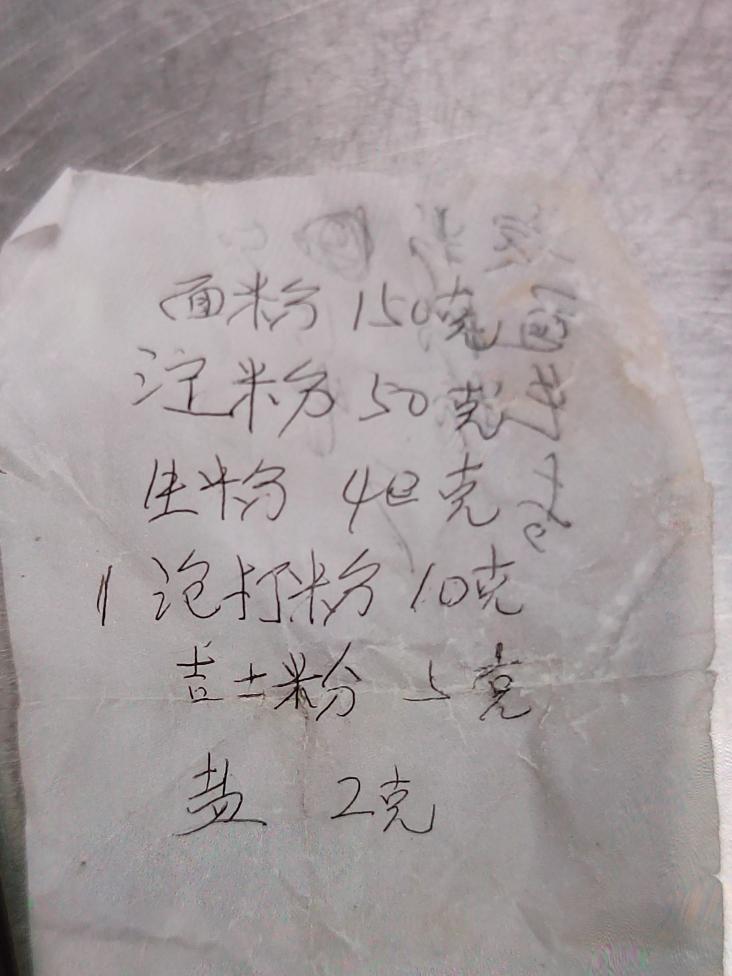 面粉 150克
淀粉 50克
生粉 40克
泡打粉 10克
吉士粉 5克
盐 2克